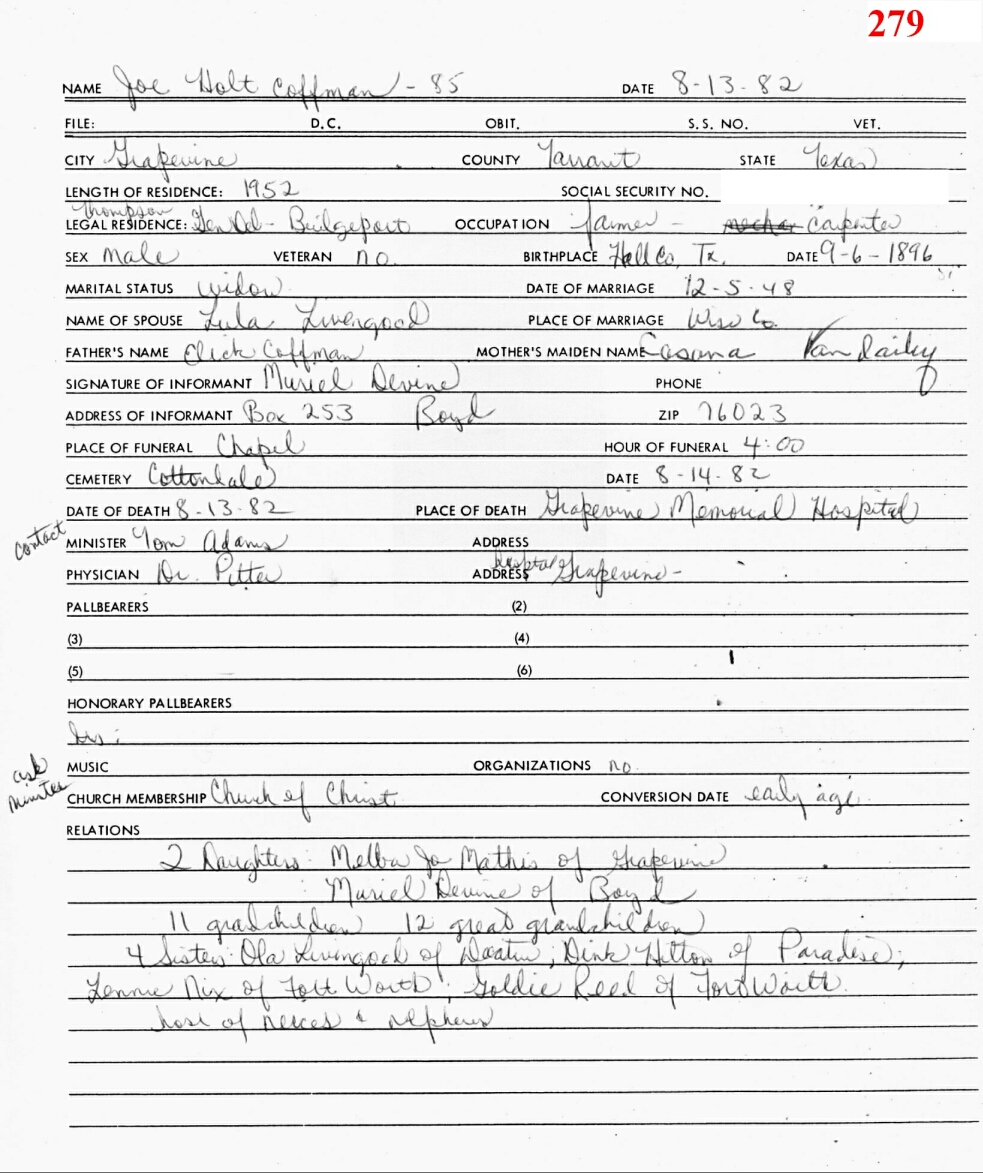 279
NAME Joe Holt Coffman - 85 DATE 8-13-82
FILE: D.C. OBIT. S.S. NO. VET.
CITY Grapevine COUNTY Tarrant STATE Texas
LENGTH OF RESIDENCE: 1952 SOCIAL SECURITY NO.
Thompson
LEGAL RESIDENCE: Gen Del - Bridgeport OCCUPATION farmer - Carpenter
SEX Male VETERAN no. BIRTHPLACE Hall Co, Tx. DATE 9-6-1896
MARITAL STATUS widow DATE OF MARRIAGE 12-5-48
NAME OF SPOUSE Lula Livengood PLACE OF MARRIAGE Wise Co.
FATHER'S NAME Elick Coffman MOTHER'S MAIDEN NAME Casana Van Dailey
SIGNATURE OF INFORMANT Muriel Devine PHONE
ADDRESS OF INFORMANT Box 253 Boyd ZIP 76023
PLACE OF FUNERAL Chapel HOUR OF FUNERAL 4:00
CEMETERY Cottondale DATE 8-14-82
DATE OF DEATH 8-13-82 PLACE OF DEATH Grapevine Memorial Hospital
contact MINISTER Tom Adams ADDRESS
PHYSICIAN Dr. Pitter ADDRESS hospital Grapevine -
PALLBEARERS (2)
(3) (4)
(5) (6)
HONORARY PALLBEARERS
ask minister MUSIC ORGANIZATIONS no.
CHURCH MEMBERSHIP Church of Christ CONVERSION DATE early age.
RELATIONS
2 Daughters: Melba Jo Mathis of Grapevine
Muriel Devine of Boyd
11 grandchildren 12 great grandchildren
4 Sisters: Ola Livengood of Decatur; Dink Hilton of Paradise;
Lennie Nix of Fort Worth; Goldie Reed of Fort Worth.
host of neices & nephews